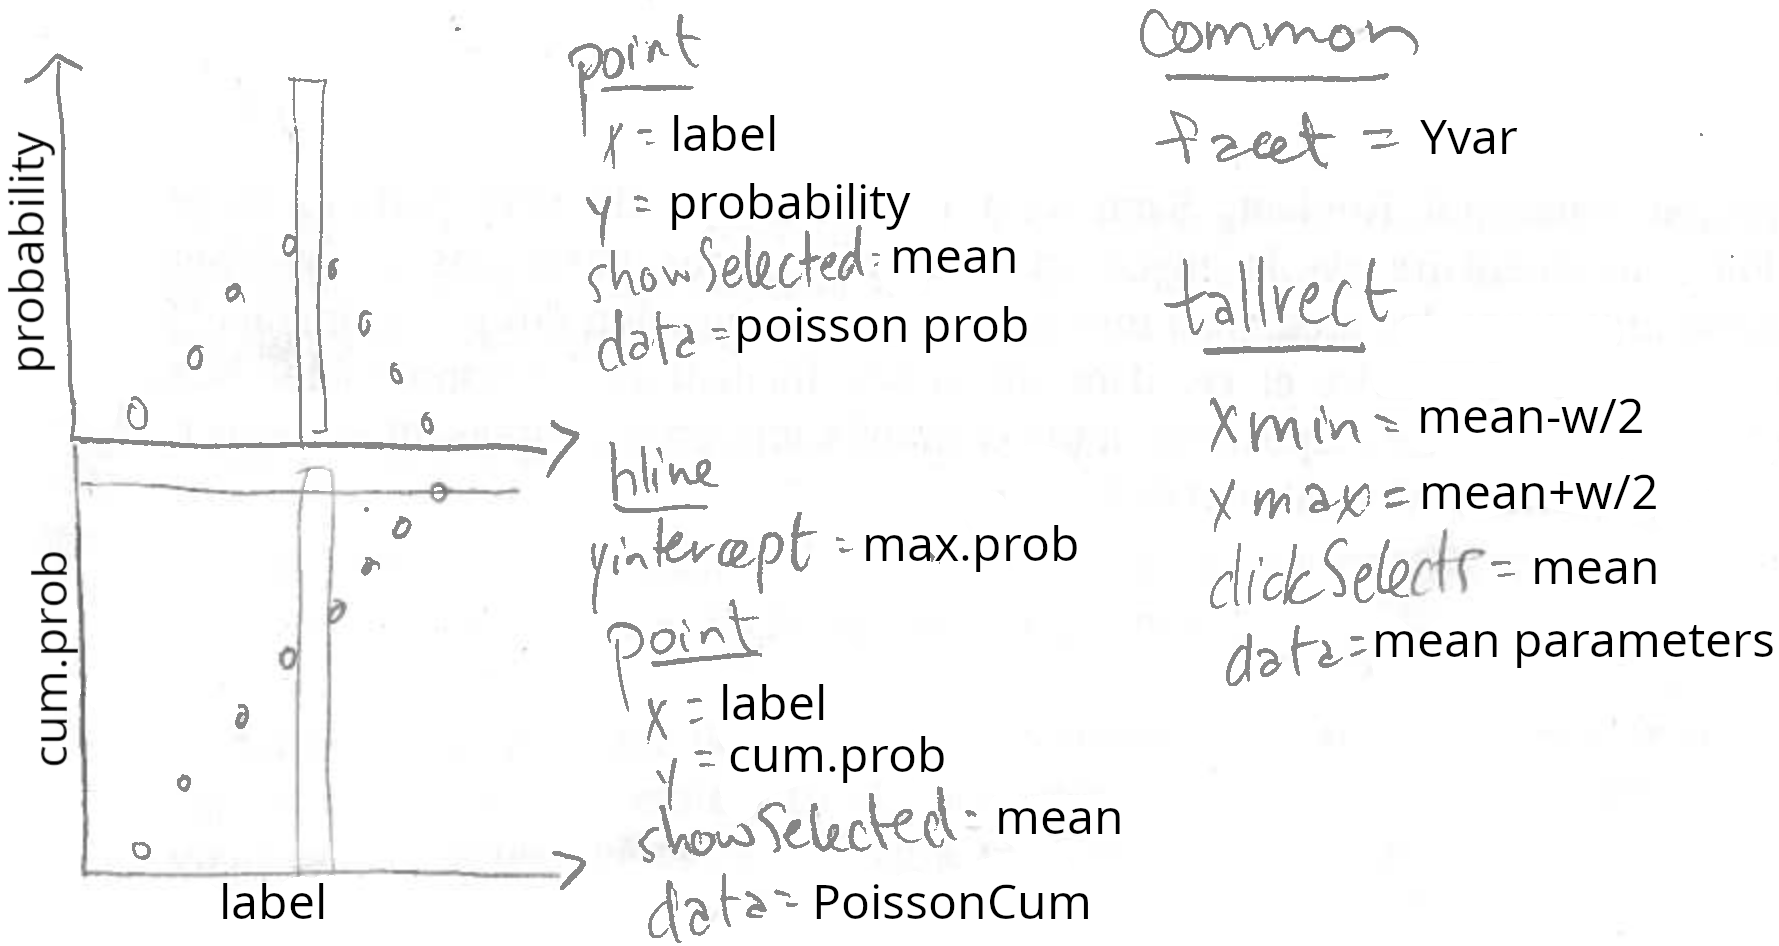 probability
cum.prob
label
point
x = label
y = probability
showSelected = mean
data = poisson prob
hline
yintercept = max.prob
point
x = label
y = cum.prob
showSelected = mean
data = PoissonCum
common
facet = Yvar
tallrect
xmin = mean-w/2
xmax = mean+w/2
clickSelects = mean
data = mean parameters